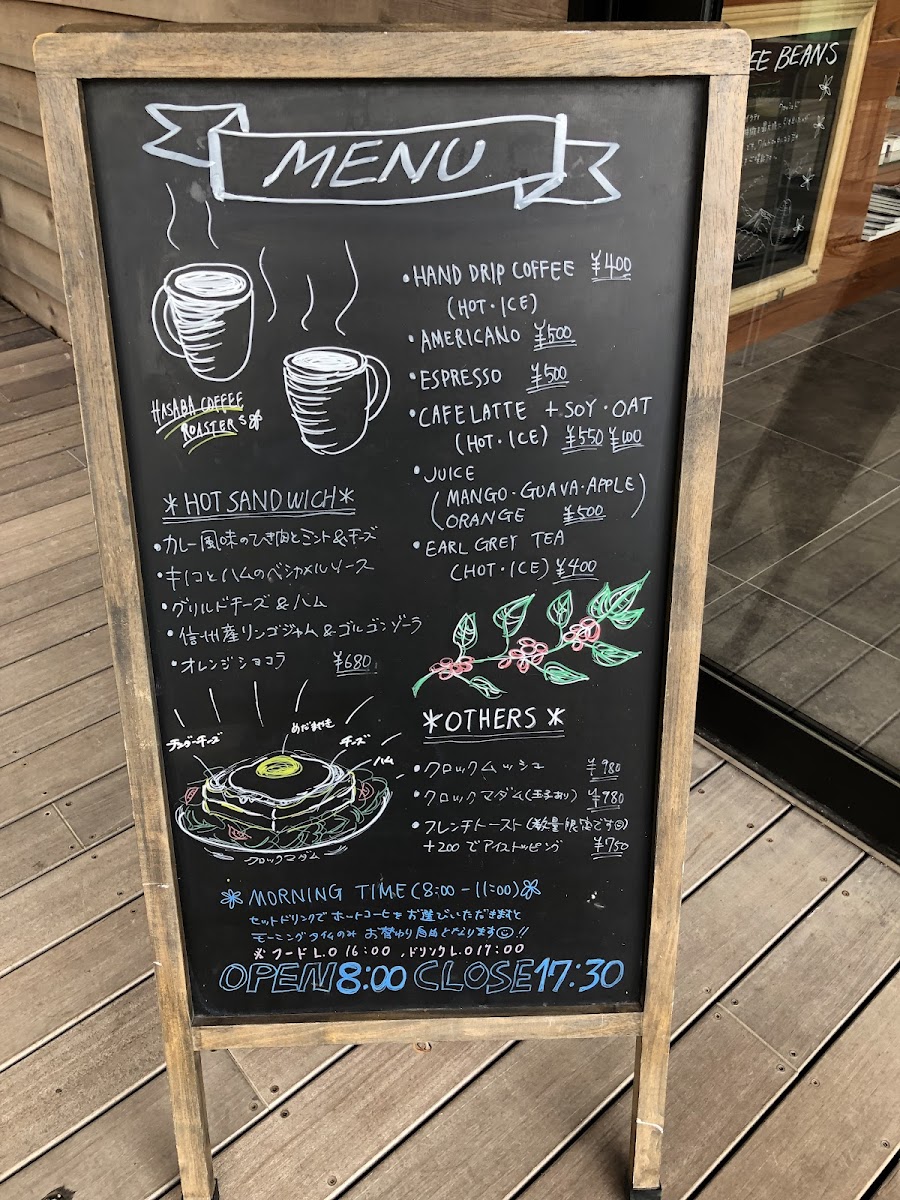 MENU
HASABA COFFEE
ROASTERS
・HAND DRIP COFFEE ¥400
(HOT・ICE)
・AMERICANO ¥500
・ESPRESSO ¥500
・CAFE LATTE + SOY・OAT
(HOT・ICE) ¥550 ¥100
・JUICE
(MANGO・GUAVA・APPLE
ORANGE ¥500)
・EARL GREY TEA
(HOT・ICE) ¥400
*HOT SANDWICH*
・カレー風味のひき肉とミント&チーズ
・キノコとハムのベシャメルソース
・グリルドチーズ&ハム
・信州産リンゴジャム&ゴルゴンゾーラ
・オレンジショコラ ¥680
チェダーチーズ
めだまやき
チーズ
ハム
クロックマダム
*OTHERS*
・クロックムッシュ ¥980
・クロックマダム(玉子あり) ¥980
・フレンチトースト(数量限定です☺)
+200でアイストッピング ¥750
MORNING TIME (8:00-11:00)
セットドリンクでホットコーヒーをお選びいただきますと
モーニングタイムのみ お替わり自由となります☺!!
※フードL.O 16:00, ドリンクL.O 17:00
OPEN 8:00 CLOSE 17:30
EE BEANS